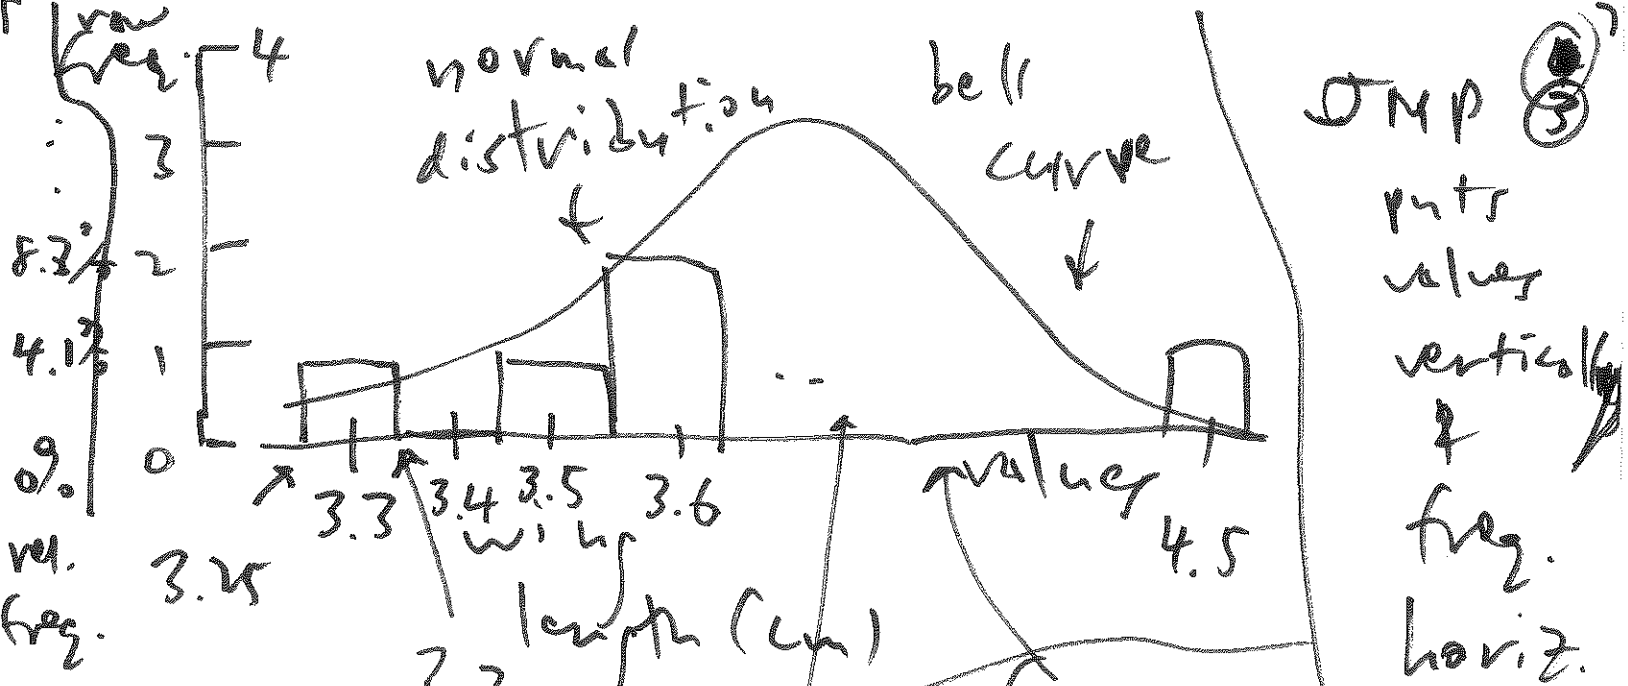 raw
freq.
4
3
2
1
0
8.3%
4.1%
0%
rel.
freq.
normal
distribution
bell
curve
3.25
3.3
3.4
3.5
3.6
values
4.5
wing
length (cm)
JMP
puts
values
vertically
&
freq.
horiz.